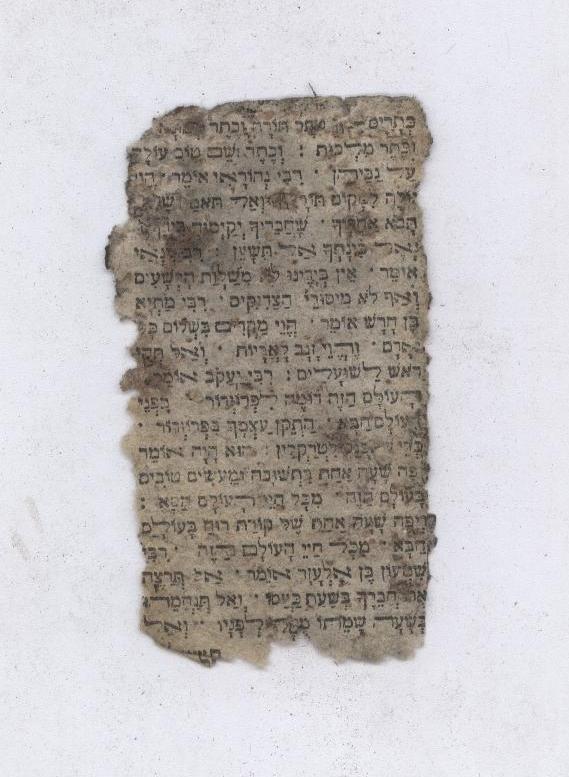 כתרים הן כתר תורה וכתר
וכתר מלכות : וכתר שם טוב עולה
על גביהן · רבי נהוראי אומר · הוי
גולה למקום תורה · ואל תאמר שהיא
תבא אחריך · שחבריך יקימוה בידך
ואל בינתך אל תשען · רבי ינאי
אומר · אין בידינו לא משלות הרשעים
ואף לא מיסורי הצדיקים · רבי מתיא
בן חרש אומר הוי מקדים בשלום כל
אדם · והוי זנב לאריות · ואל תהי
ראש לשועלים : רבי יעקב אומר
העולם הזה דומה לפרוזדור בפני
העולם הבא · התקן עצמך בפרוזדור ·
כדי לטרקלין · הוא היה אומר
יפה שעה אחת בתשובה ומעשים טובים
בעולם הזה · מכל חיי העולם הבא :
ויפה שעה אחת של קורת רוח בעולם
הבא · מכל חיי העולם הזה · רבי
שמעון בן אלעזר אומר · אל תרצה
את חברך בשעת כעסו · ואל תנחמהו
בשעה שמתו מוטל לפניו · ואל